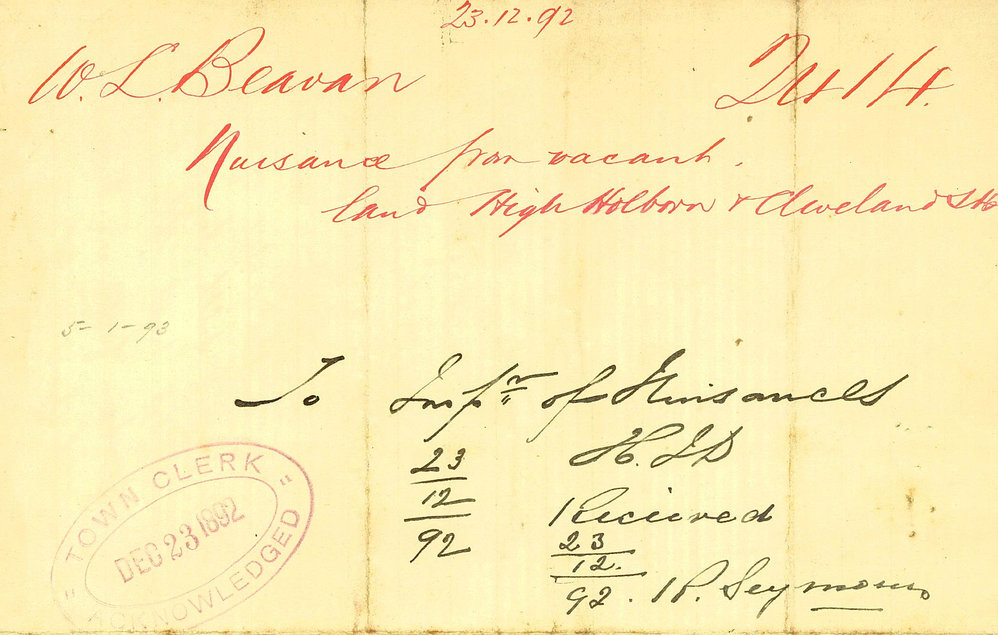 23.12.92
W. L. Beavan 2414.
Nuisance from vacant.
land High Holborn & Cleveland Sts
5-1-93
To Inspr of Nuisances
23 H.J.D
12
92
Received
23
12.
92. R. Seymour
"TOWN CLERK"
DEC 23 1892
ACKNOWLEDGED